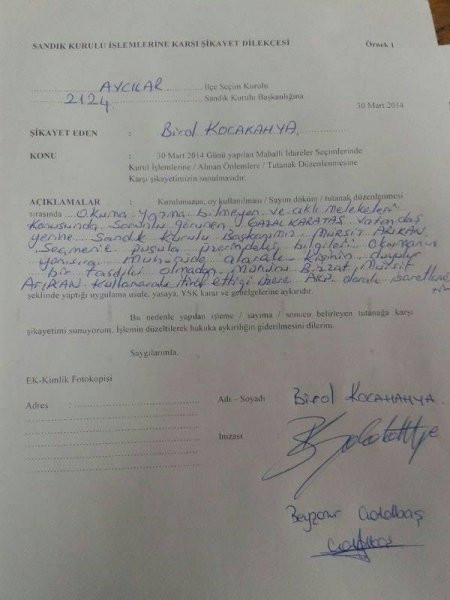 SANDIK KURULU İŞLEMLERİNE KARŞI ŞİKAYET DİLEKÇESİ Örnek 1
AVCILAR İlçe Seçim Kurulu
2124 Sandık Kurulu Başkanlığına
30 Mart 2014
ŞİKAYET EDEN : Birol KOCAKAHYA
KONU : 30 Mart 2014 Günü yapılan Mahalli İdareler Seçimlerinde
Kurul İşlemlerine / Alınan Önlemlere / Tutanak Düzenlenmesine
Karşı şikayetimizin sunulmasıdır.
AÇIKLAMALAR : Kurulumuzun, oy kullanılması / Sayım döküm / tutanak düzenlenmesi
sırasında Okuma Yazma bilmeyen ve akli melekeleri
konusunda sorunlu görünen GAZAL KARATAŞ vatandaş
yerine Sandık Kurulu Başkanımız Mürsit ARIKAN
Seçmenin pusula üzerindeki bilgileri okumanın
yanısıra kişinin
bir tasdiki olmadan Mührü Bizzat Mürsit
ARIKAN ettiği üzere AKP olarak
şeklinde yaptığı uygulama usule, yasaya, YSK karar ve genelgelerine aykırıdır.
Bu nedenle yapılan işleme / sayıma / sonucu belirleyen tutanağa karşı
şikayetimi sunuyorum. İşlemin düzeltilerek hukuka aykırılığın giderilmesini dilerim.
Saygılarımla.
EK-Kimlik Fotokopisi
Adres : Adı – Soyadı Birol KOCAKAHYA
İmzası
Beyzanur